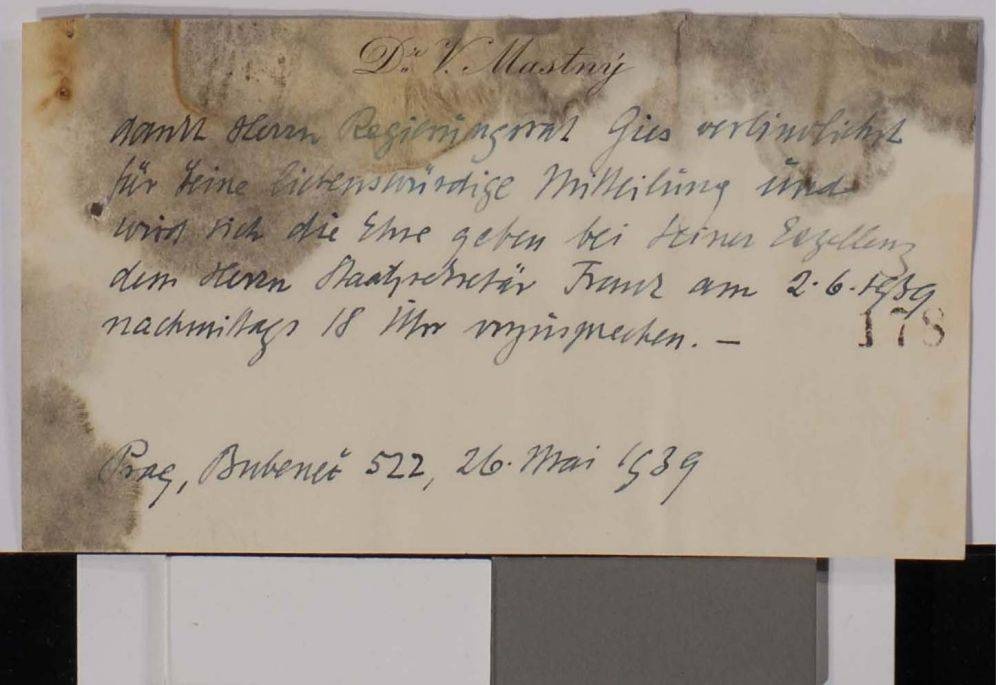 Dr. V. Mastný
dankt Herrn Regierungsrat Gies verbindlichst
für seine liebenswürdige Mitteilung und
wird sich die Ehre geben bei Seiner Exzellenz
dem Herrn Staatssekretär Frank am 2.6.1939
nachmittags 18 Uhr vorzusprechen. —
178
Prag, Bubeneč 522, 26. Mai 1939